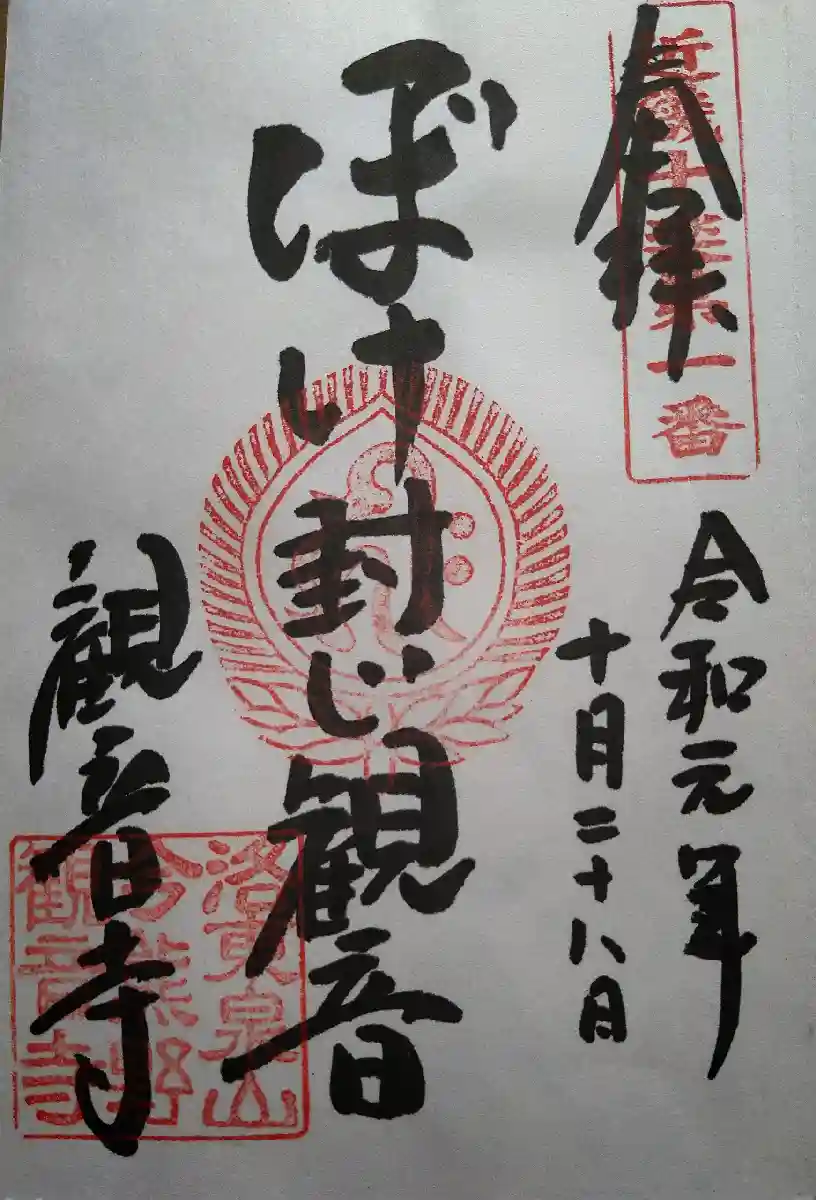 奉拝
近畿十楽第一番
令和元年
十月二十八日
ぼけ封じ観音
観音寺
洛東泉山
今熊野
観音寺